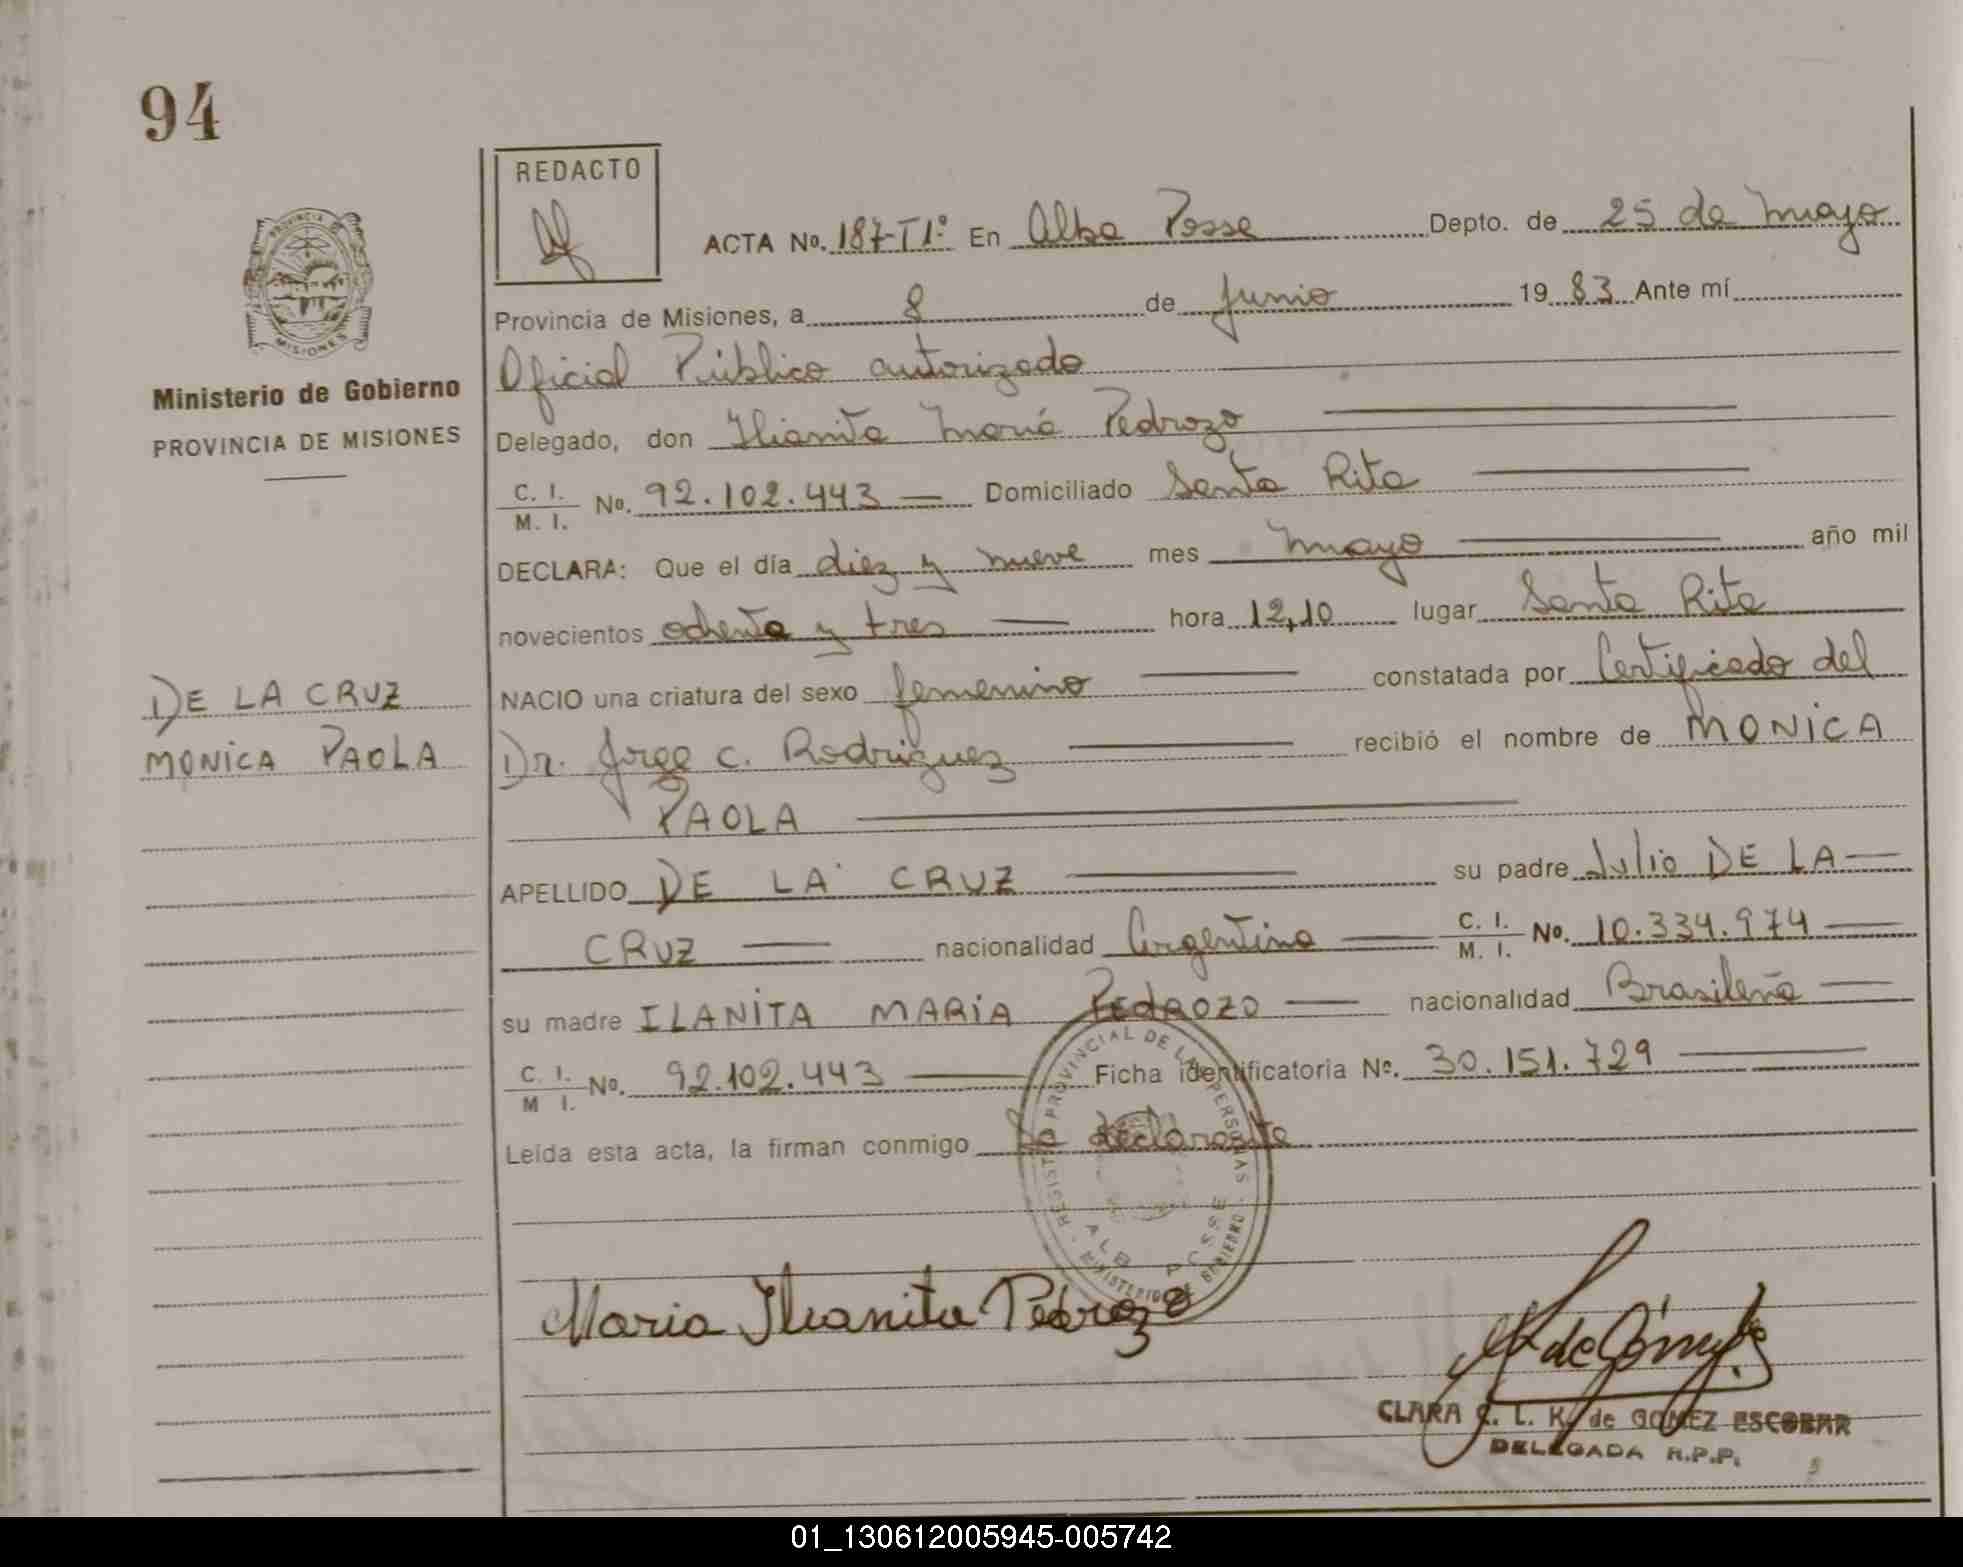 94
REDACTO
PROVINCIA DE
MISIONES
Ministerio de Gobierno
PROVINCIA DE MISIONES
DE LA CRUZ
MONICA PAOLA
ACTA No. 187-T1º En Alba Posse Depto. de 25 de Mayo
Provincia de Misiones, a 8 de Junio 1983 Ante mí
Oficial Público autorizado
Delegado, don Ilianita María Pedrozo
C. I. / M. I. No. 92.102.443 — Domiciliado Santa Rita
DECLARA: Que el día diez y nueve mes Mayo año mil
novecientos ochenta y tres hora 12,10 lugar Santa Rita
NACIO una criatura del sexo femenino constatada por Certificado del
Dr. Jorge C. Rodriguez recibió el nombre de MONICA
PAOLA
APELLIDO DE LA CRUZ su padre Julio DE LA
CRUZ nacionalidad Argentina C. I. / M. I. No. 10.334.974
su madre ILANITA MARIA PEDROZO nacionalidad Brasileña
C. I. / M I. No. 92.102.443 Ficha identificatoria No. 30.151.729
Leída esta acta, la firman conmigo la declarante
REGISTRO PROVINCIAL DE LAS PERSONAS
MINISTERIO DE GOBIERNO
ALB POSSE
Maria Ilianita Pedrozo
CLARA L. K. de GOMEZ ESCOBAR
DELEGADA R.P.P.
01_130612005945-005742